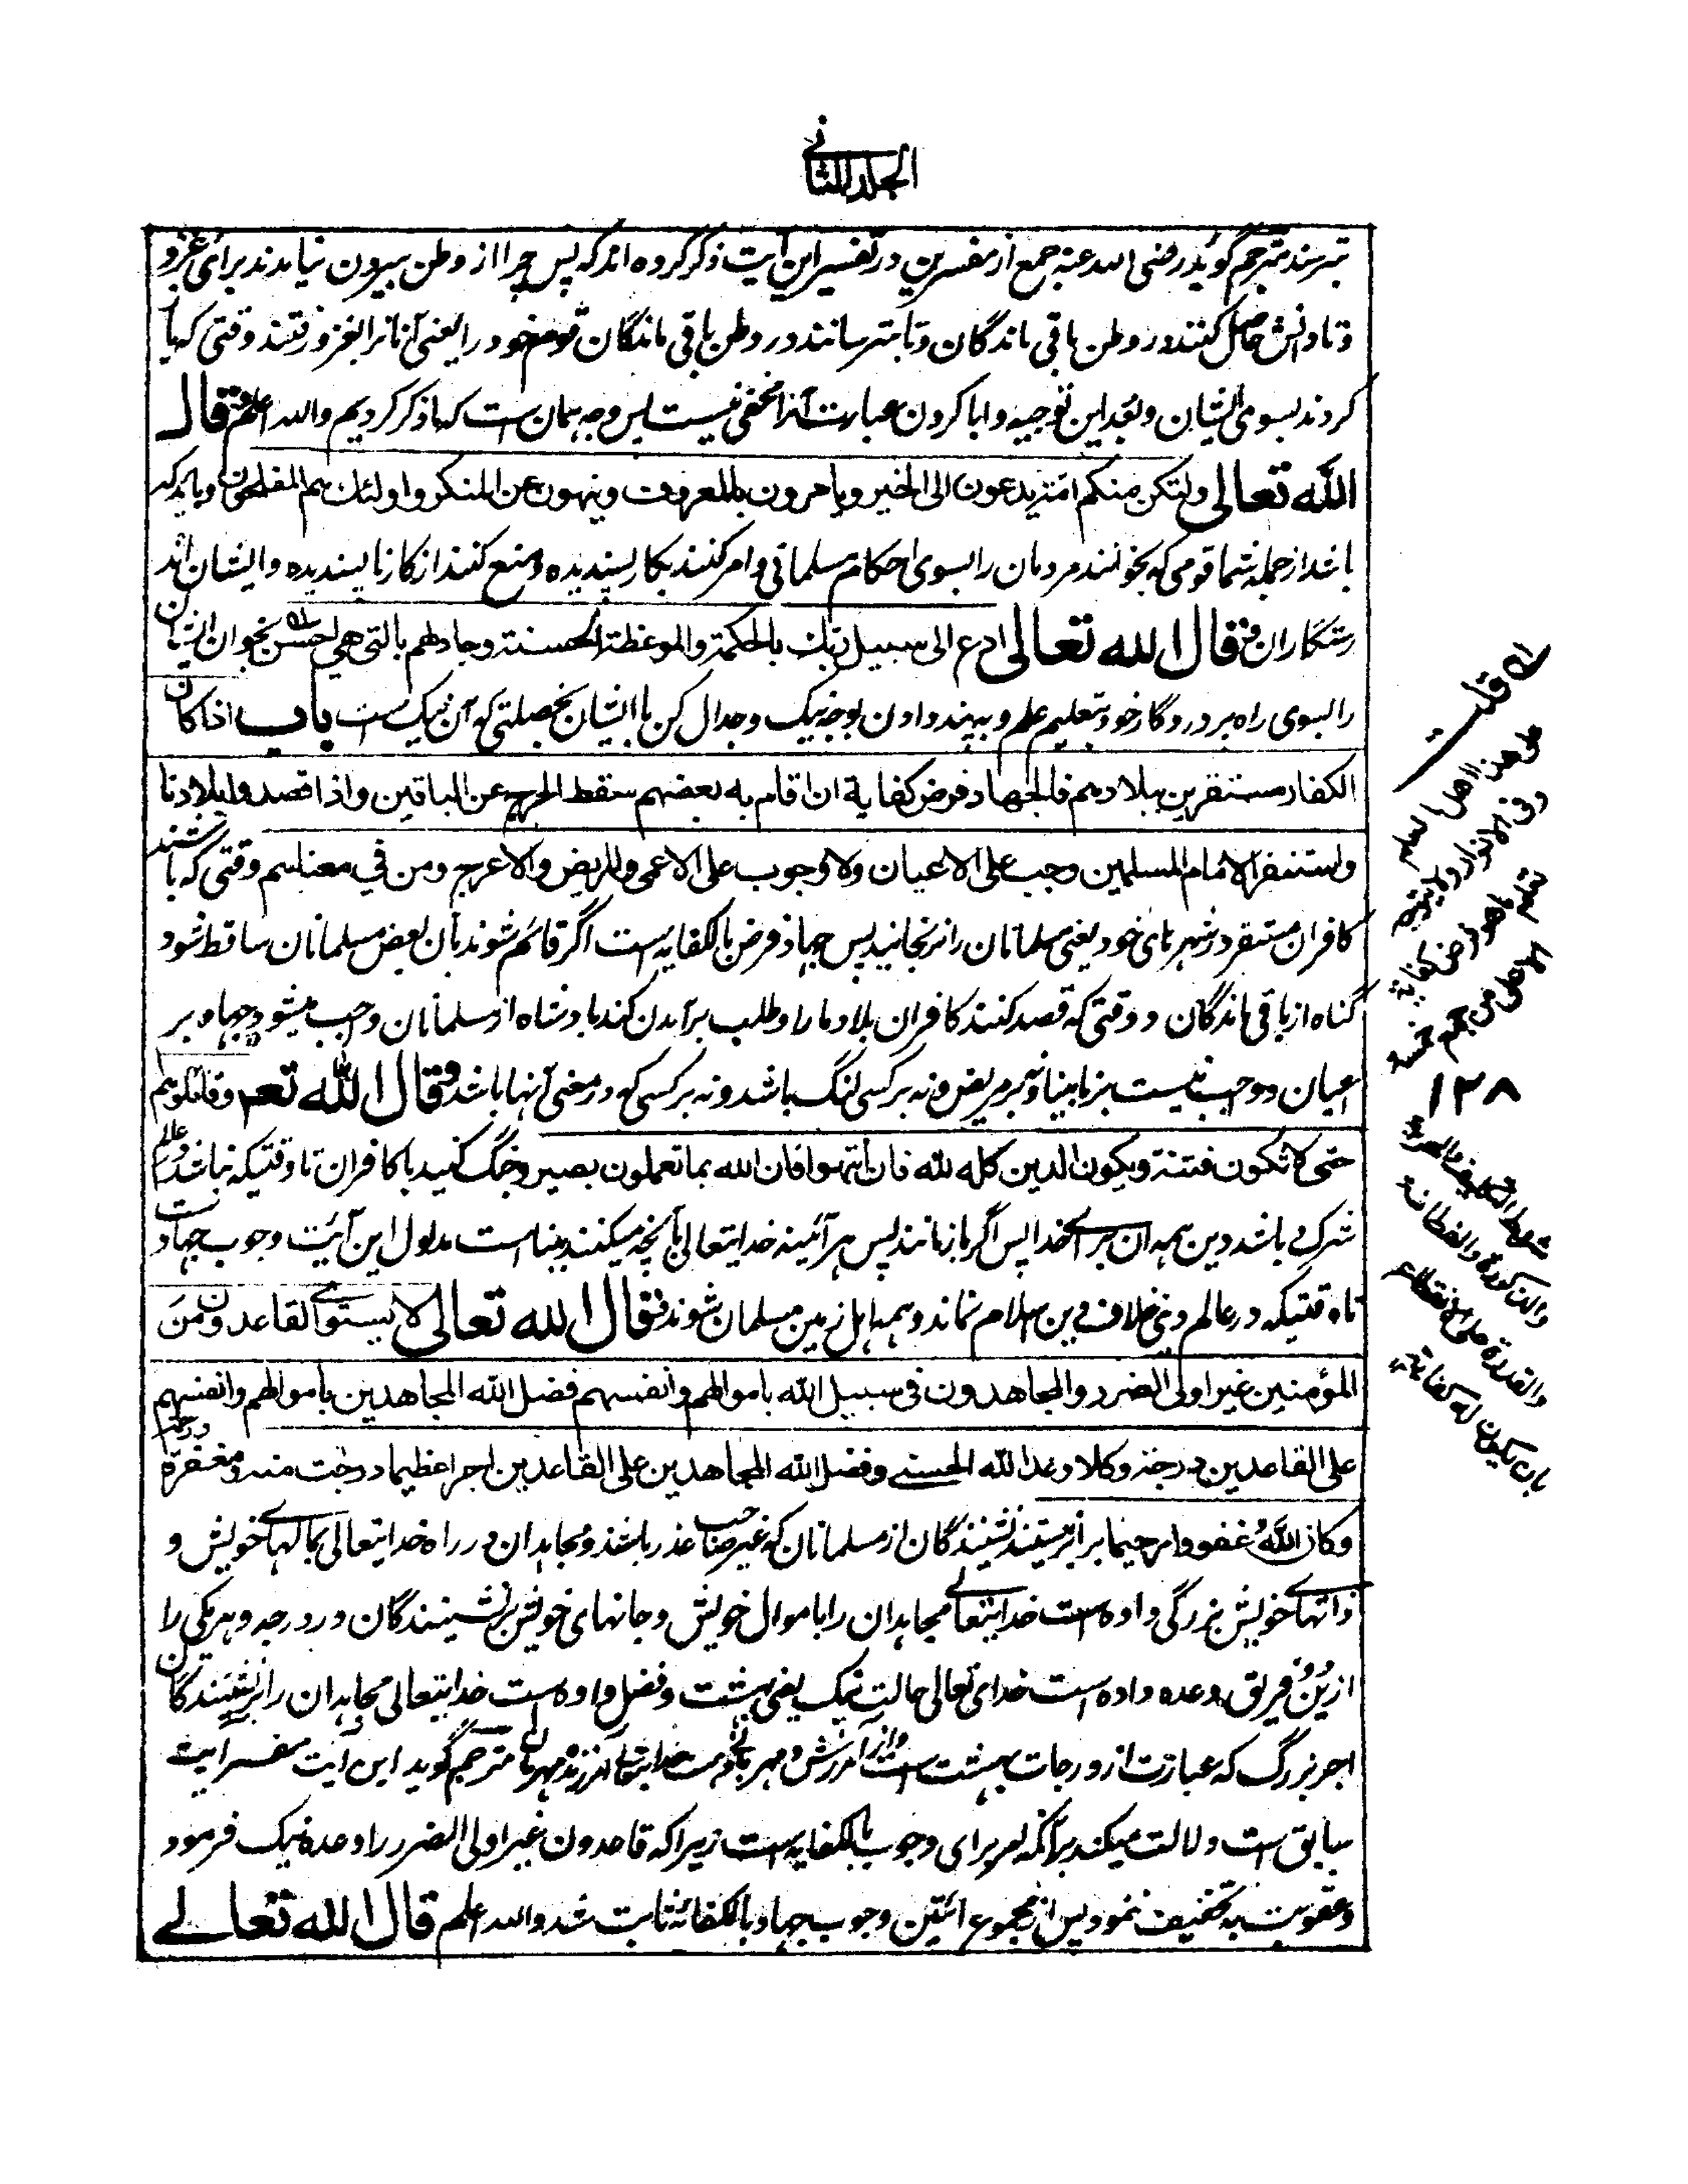 الجلد الثانی
بترسند مترجم گوید رضی الله عنه جمع از مفسرین در تفسیر این آیت ذکر کرده اند که پس چرا از وطن بیرون نیامدند برای غزو
و تا دانش حاصل کنند در وطن باقی ماندگان و تا بترسانند در وطن باقی ماندگان قوم خود را یعنی آنانرا بغزو رفتند وقتی که باز
کردند بسوی ایشان و بعد این توجیه و ابا کردن عبارت آنرا مخفی نیست پس وجه همان ست که ما ذکر کردیم والله اعلم قال
الله تعالی ولتکن منکم امة یدعون الی الخیر ویامرون بالمعروف وینهون عن المنکر واولئک هم المفلحون و باید که
باشد از جمله شما قومی که بخوانند مردمان را بسوی احکام مسلمانی و امر کنند بکار پسندیده و منع کنند از کار ناپسندیده و ایشان اند
رستگاران قال الله تعالی ادع الی سبیل ربک بالحکمة والموعظة الحسنة وجادلهم بالتی هی احسن بخوان ایشان
را بسوی راه پروردگار خود بتعلیم علم و به پند دادن بوجه نیک و جدال کن با ایشان بخصلتی که آن نیک ست باب اذا کان
الکفار مستقرین ببلادهم فالجهاد فرض کفایة ان قام به بعضهم سقط الحرج عن الباقین واذا قصدوا بلادنا
واستنفر الامام المسلمین وجب علی الاعیان ولا وجوب علی الاعمی والمریض والاعرج ومن فی معناهم وقتی که باشند
کافران مستقر در شهرهای خود یعنی مسلمانان را نرنجانید پس جهاد فرض بالکفایه است اگر قائم شوند بآن بعض مسلمانان ساقط شود
گناه از باقی ماندگان و وقتی که قصد کنند کافران بلاد ما را و طلب برآمدن کند بادشاه از مسلمانان واجب میشود جهاد بر
اعیان و واجب نیست بر نابینا و نه بر مریض و نه بر کسی لنگ باشد و نه بر کسی که در معنی آنها باشد قال الله تعم وقاتلوهم
حتی لا تکون فتنة ویکون الدین کله لله فان انتهوا فان الله بما تعملون بصیر و جنگ کنید با کافران تا وقتیکه نباشد در عالم
شرک و باشد دین همه آن برای خدا پس اگر باز مانند پس هر آئینه خدایتعالی بآنچه میکنند بینا است مدلول این آیت وجوب جهاد ست
تا وقتیکه در عالم دینی خلاف دین اسلام نماند و همه اهل زمین مسلمان شوند قال الله تعالی لا یستوی القاعدون من
المؤمنین غیر اولی الضرر والمجاهدون فی سبیل الله باموالهم وانفسهم فضل الله المجاهدین باموالهم وانفسهم
علی القاعدین درجة وکلا وعد الله الحسنی وفضل الله المجاهدین علی القاعدین اجرا عظیما درجت منه ومغفرة ورحمة
وکان الله غفورا رحیما برابر نیستند نشینندگان از مسلمانان که غیر صاحب عذر باشند و مجاهدان در راه خدایتعالی بمالهای خویش و
ذاتهای خویش بزرگی داده ست خدایتعالی مجاهدان را باموال خویش و جانهای خویش بر نشینندگان در درجه و هر یکی را
ازین فریق وعده داده است خدای تعالی حالت نیک یعنی بهشت و فضل داده است خدایتعالی مجاهدان را بر نشینندگان
اجر بزرگ که عبارت از درجات بهشت ست و از آمرزش و مهربانی ست خدایتعالی آمرزنده مهربان مترجم گوید این آیت مفسر آیت
سابق ست و دلالت میکند برآنکه امر برای وجوب بالکفایه است زیرا که قاعدون غیر اولی الضرر را وعده نیک فرمود
و عقوبت به تخفیف نمود پس از مجموع آیتین وجوب جهاد بالکفایه ثابت شد والله اعلم قال الله تعالے
قلت
علی هذا اهل العلم
وفی الانوار
فرض کفایة
۱۲۸
شروط التکلیف
والذکورة
والقدرة علی
بان یکون له کفایة